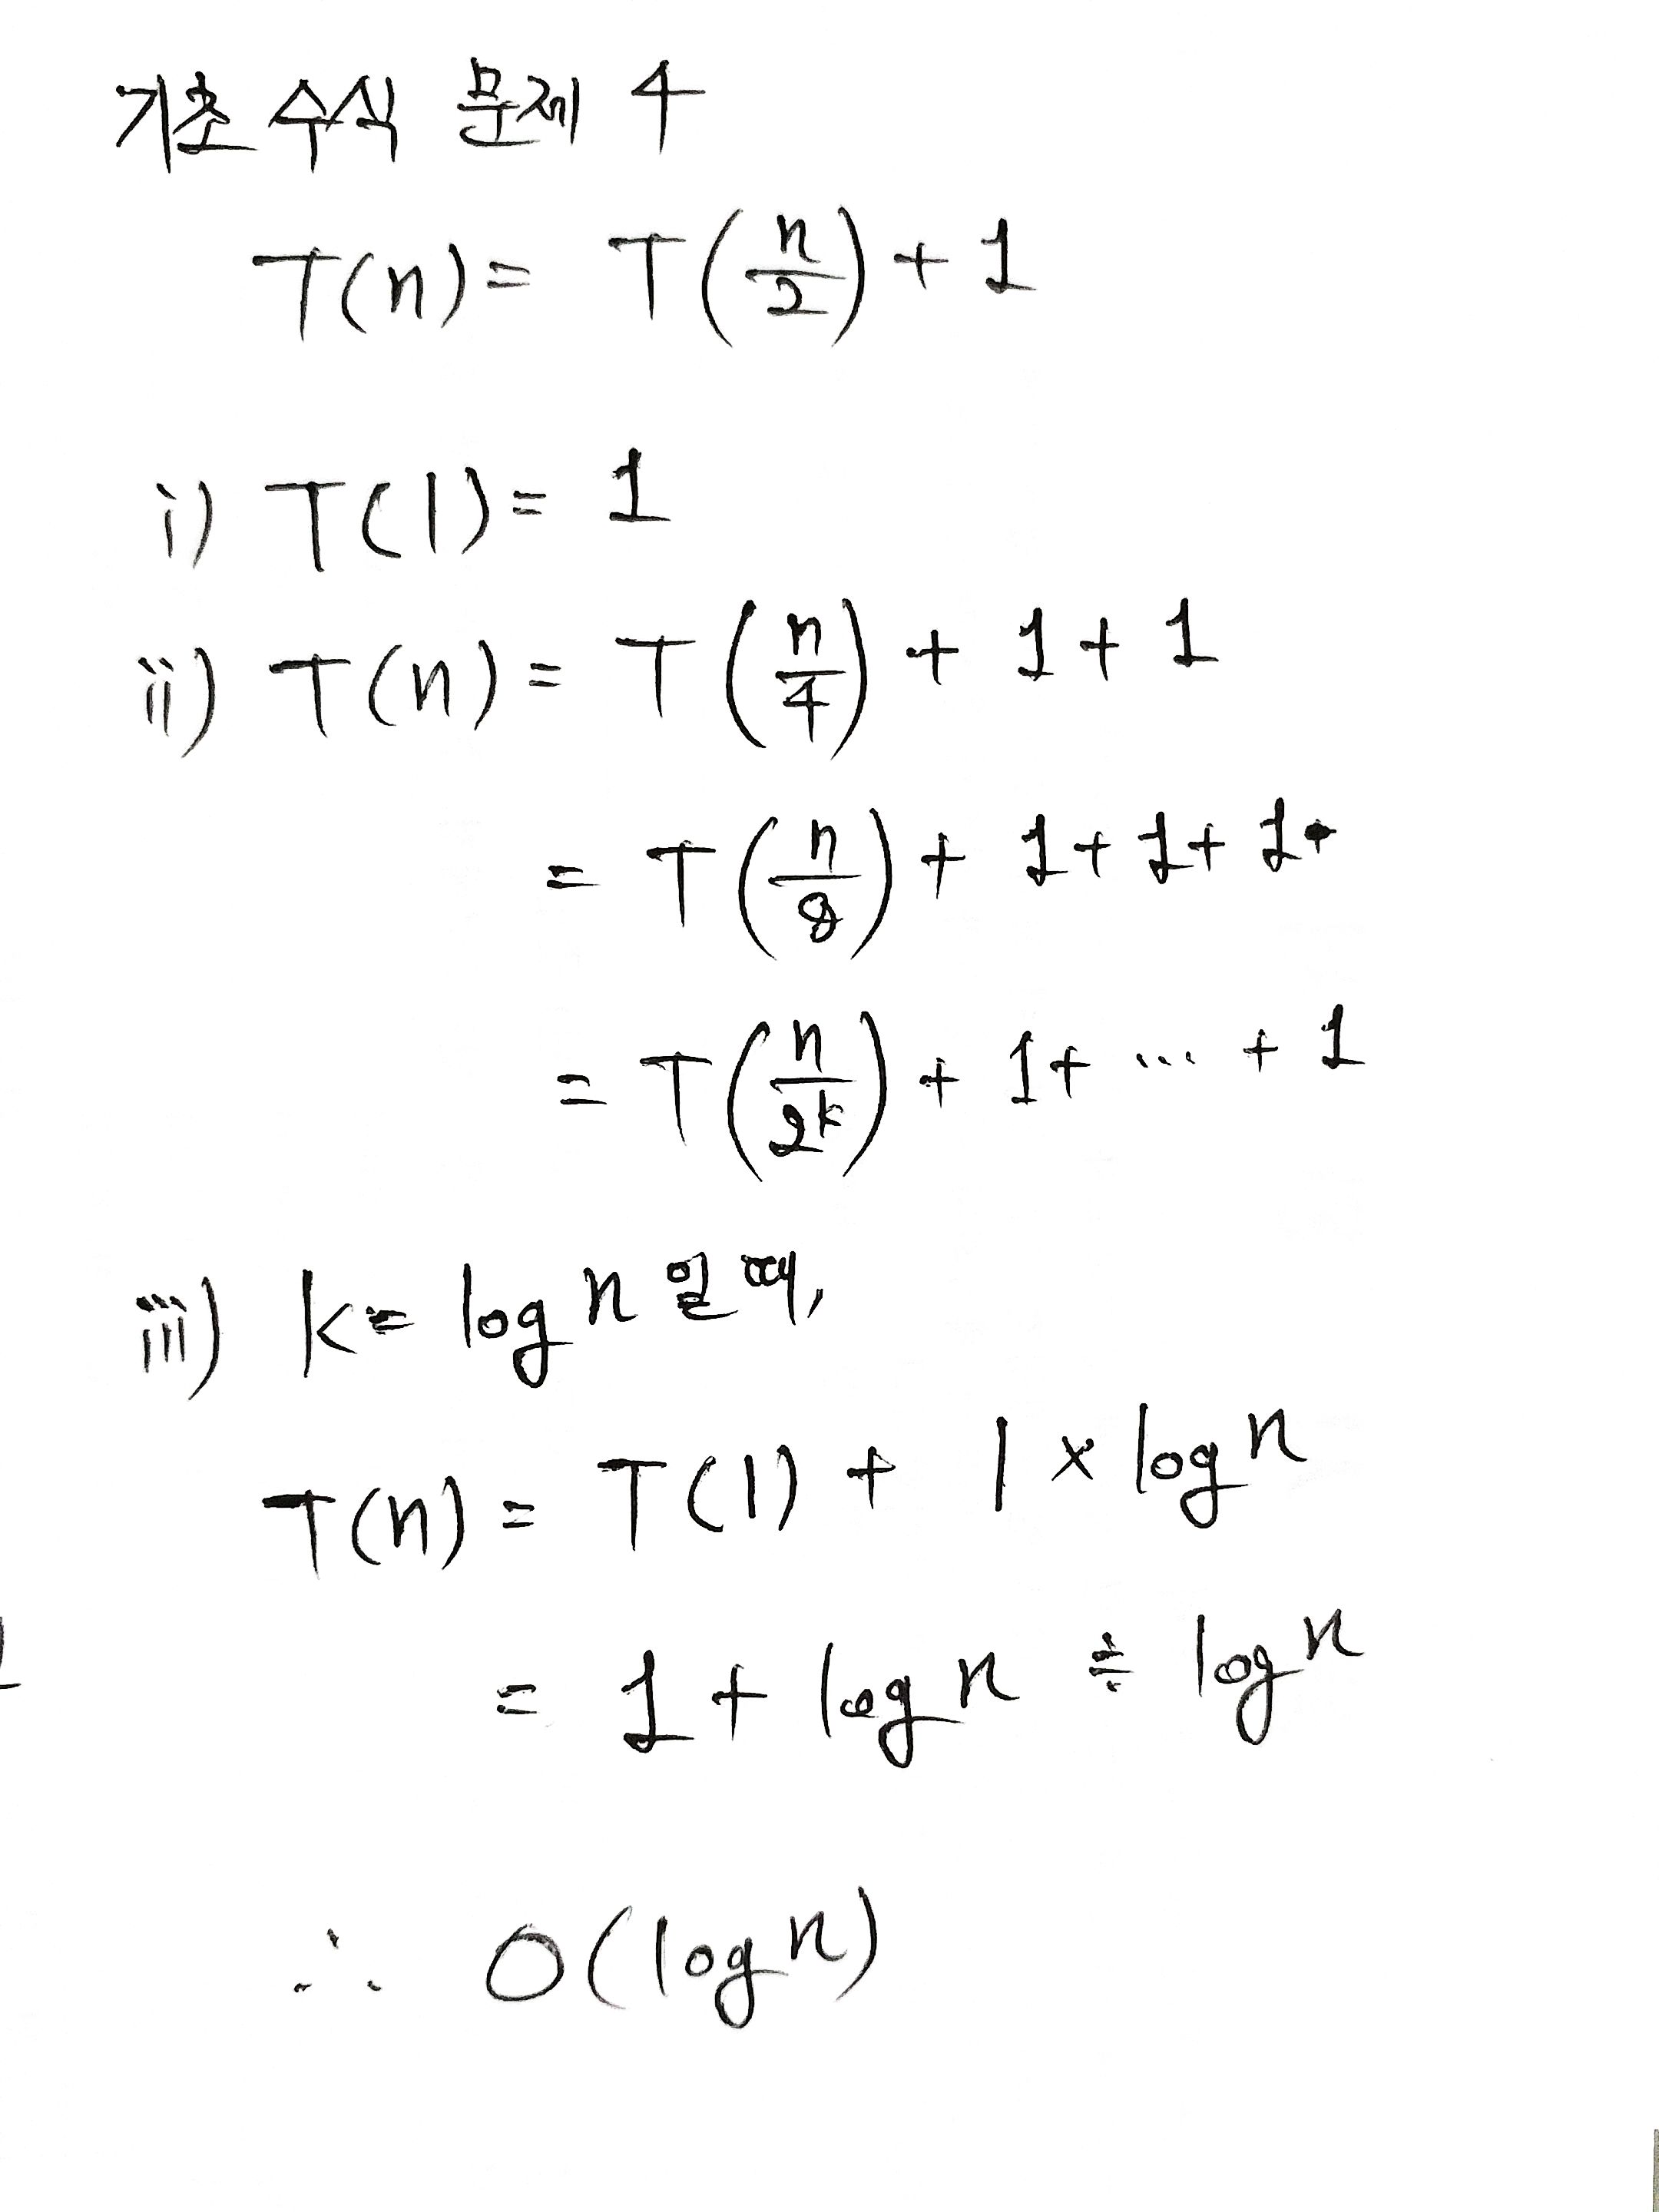 기초 수식 문제 4
T(n) = T(n/2) + 1
i) T(1) = 1
ii) T(n) = T(n/4) + 1 + 1
= T(n/8) + 1 + 1 + 1
= T(n/2^k) + 1 + ... + 1
iii) k = log n 일 때,
T(n) = T(1) + 1 × log n
= 1 + log n ≒ log n
∴ O(log n)